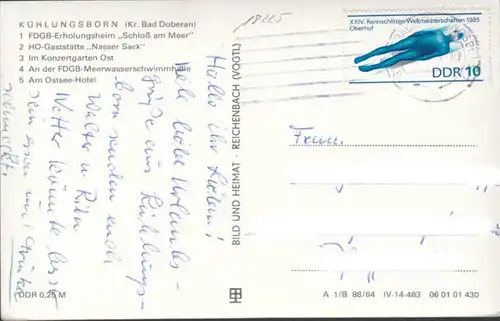 KÜHLUNGSBORN (Kr. Bad Doberan)
1 FDGB-Erholungsheim „Schloß am Meer"
2 HO-Gaststätte „Nasser Sack"
3 Im Konzertgarten Ost
4 An der FDGB-Meerwasserschwimmhalle
5 Am Ostsee-Hotel
18225
XXIV. Rennschlitten-Weltmeisterschaften 1985
Oberhof
DDR 10
Hallo ihr Lieben!
Viele liebe Urlaubs-
grüße aus Kühlungs-
born senden euch
Walter u. Rita
Wetter könnte bess-
sein essen und trinken
schmeckt.
BILD UND HEIMAT · REICHENBACH (VOGTL)
Fam.
DDR 0,25 M
A 1/B 88/84 IV-14-483 06 01 01 430